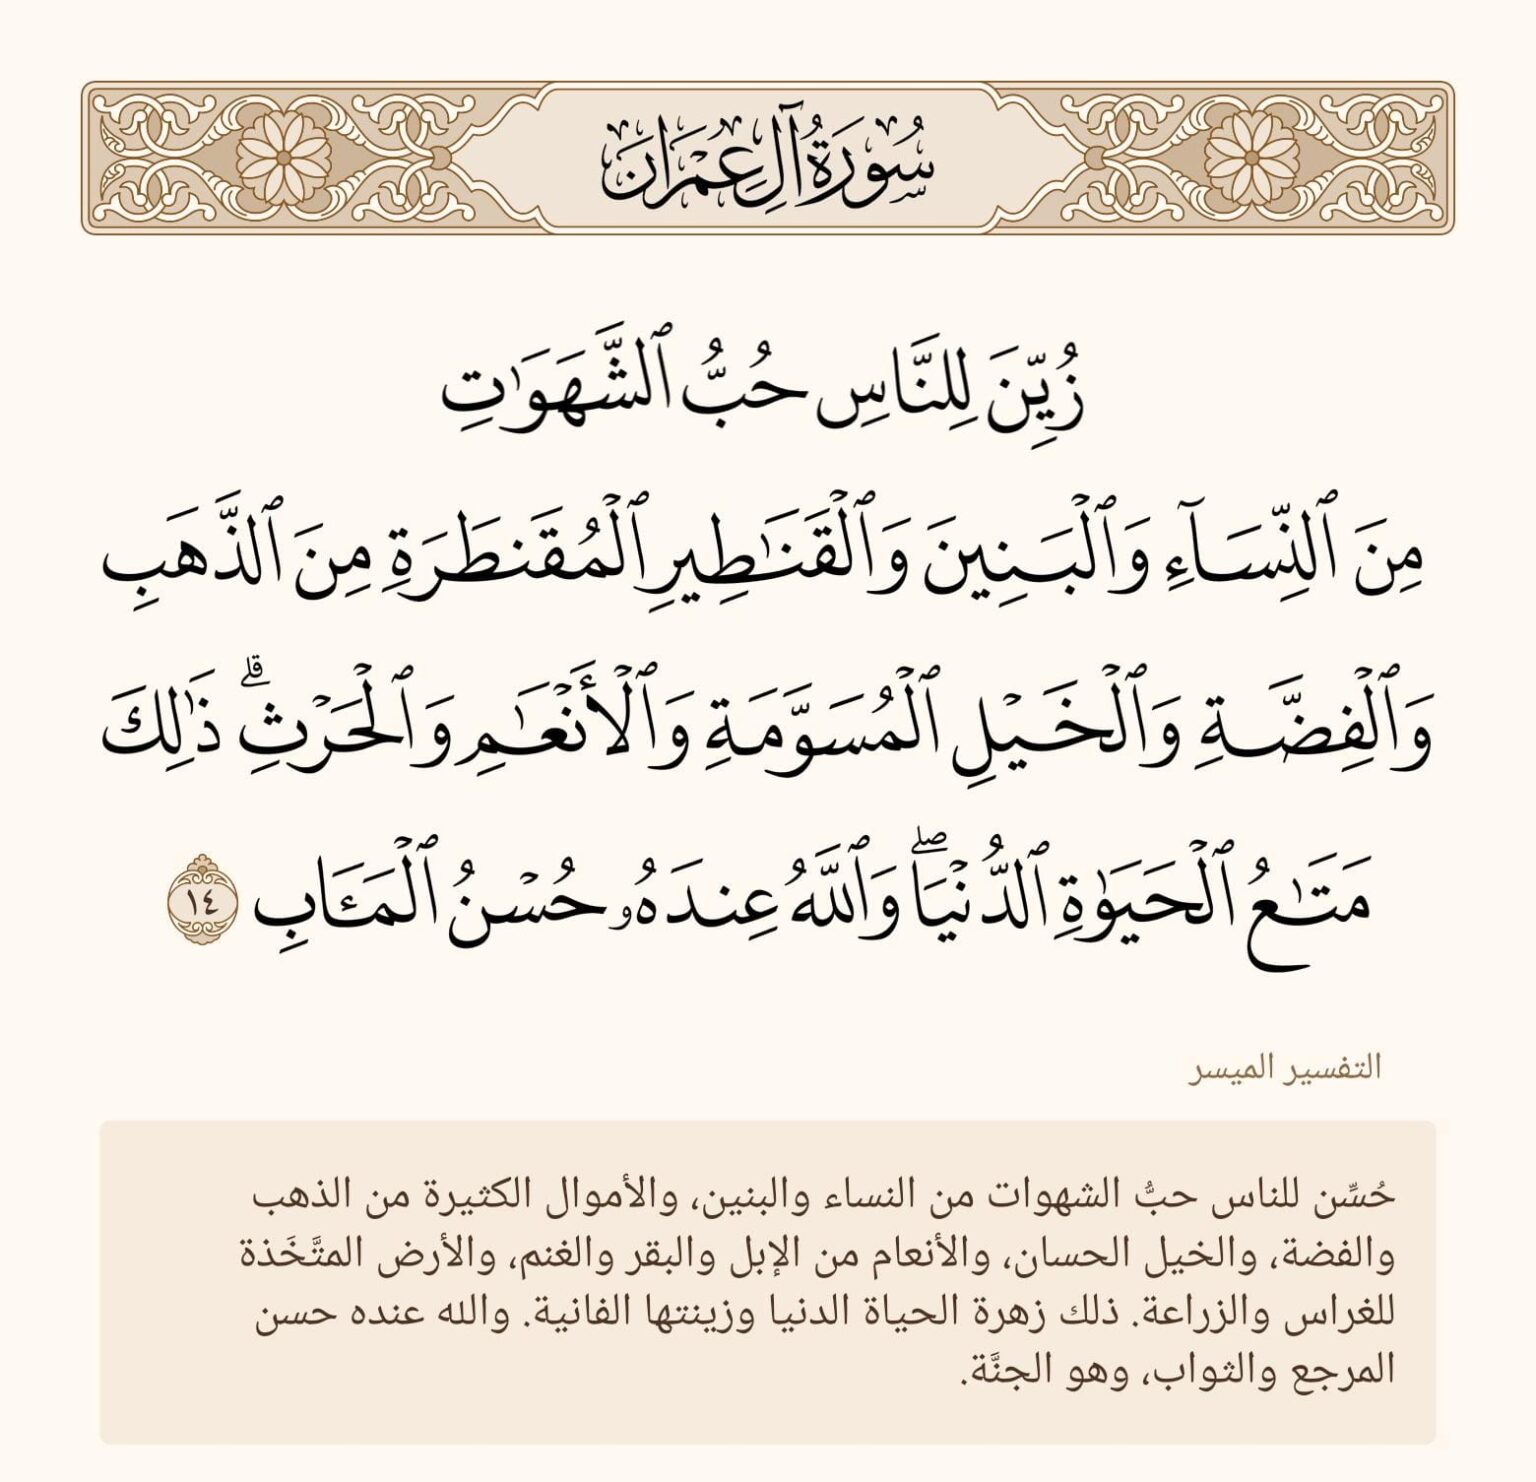 سُورَةُ آلِ عِمْرَانَ
زُيِّنَ لِلنَّاسِ حُبُّ ٱلشَّهَوَٰتِ
مِنَ ٱلنِّسَآءِ وَٱلْبَنِينَ وَٱلْقَنَٰطِيرِ ٱلْمُقَنطَرَةِ مِنَ ٱلذَّهَبِ
وَٱلْفِضَّةِ وَٱلْخَيْلِ ٱلْمُسَوَّمَةِ وَٱلْأَنْعَٰمِ وَٱلْحَرْثِۗ ذَٰلِكَ
مَتَٰعُ ٱلْحَيَوٰةِ ٱلدُّنْيَاۖ وَٱللَّهُ عِندَهُۥ حُسْنُ ٱلْمَـَٔابِ ١٤
التفسير الميسر
حُسِّن للناس حبُّ الشهوات من النساء والبنين، والأموال الكثيرة من الذهب
والفضة، والخيل الحسان، والأنعام من الإبل والبقر والغنم، والأرض المتَّخَذة
للغراس والزراعة. ذلك زهرة الحياة الدنيا وزينتها الفانية. والله عنده حسن
المرجع والثواب، وهو الجنَّة.